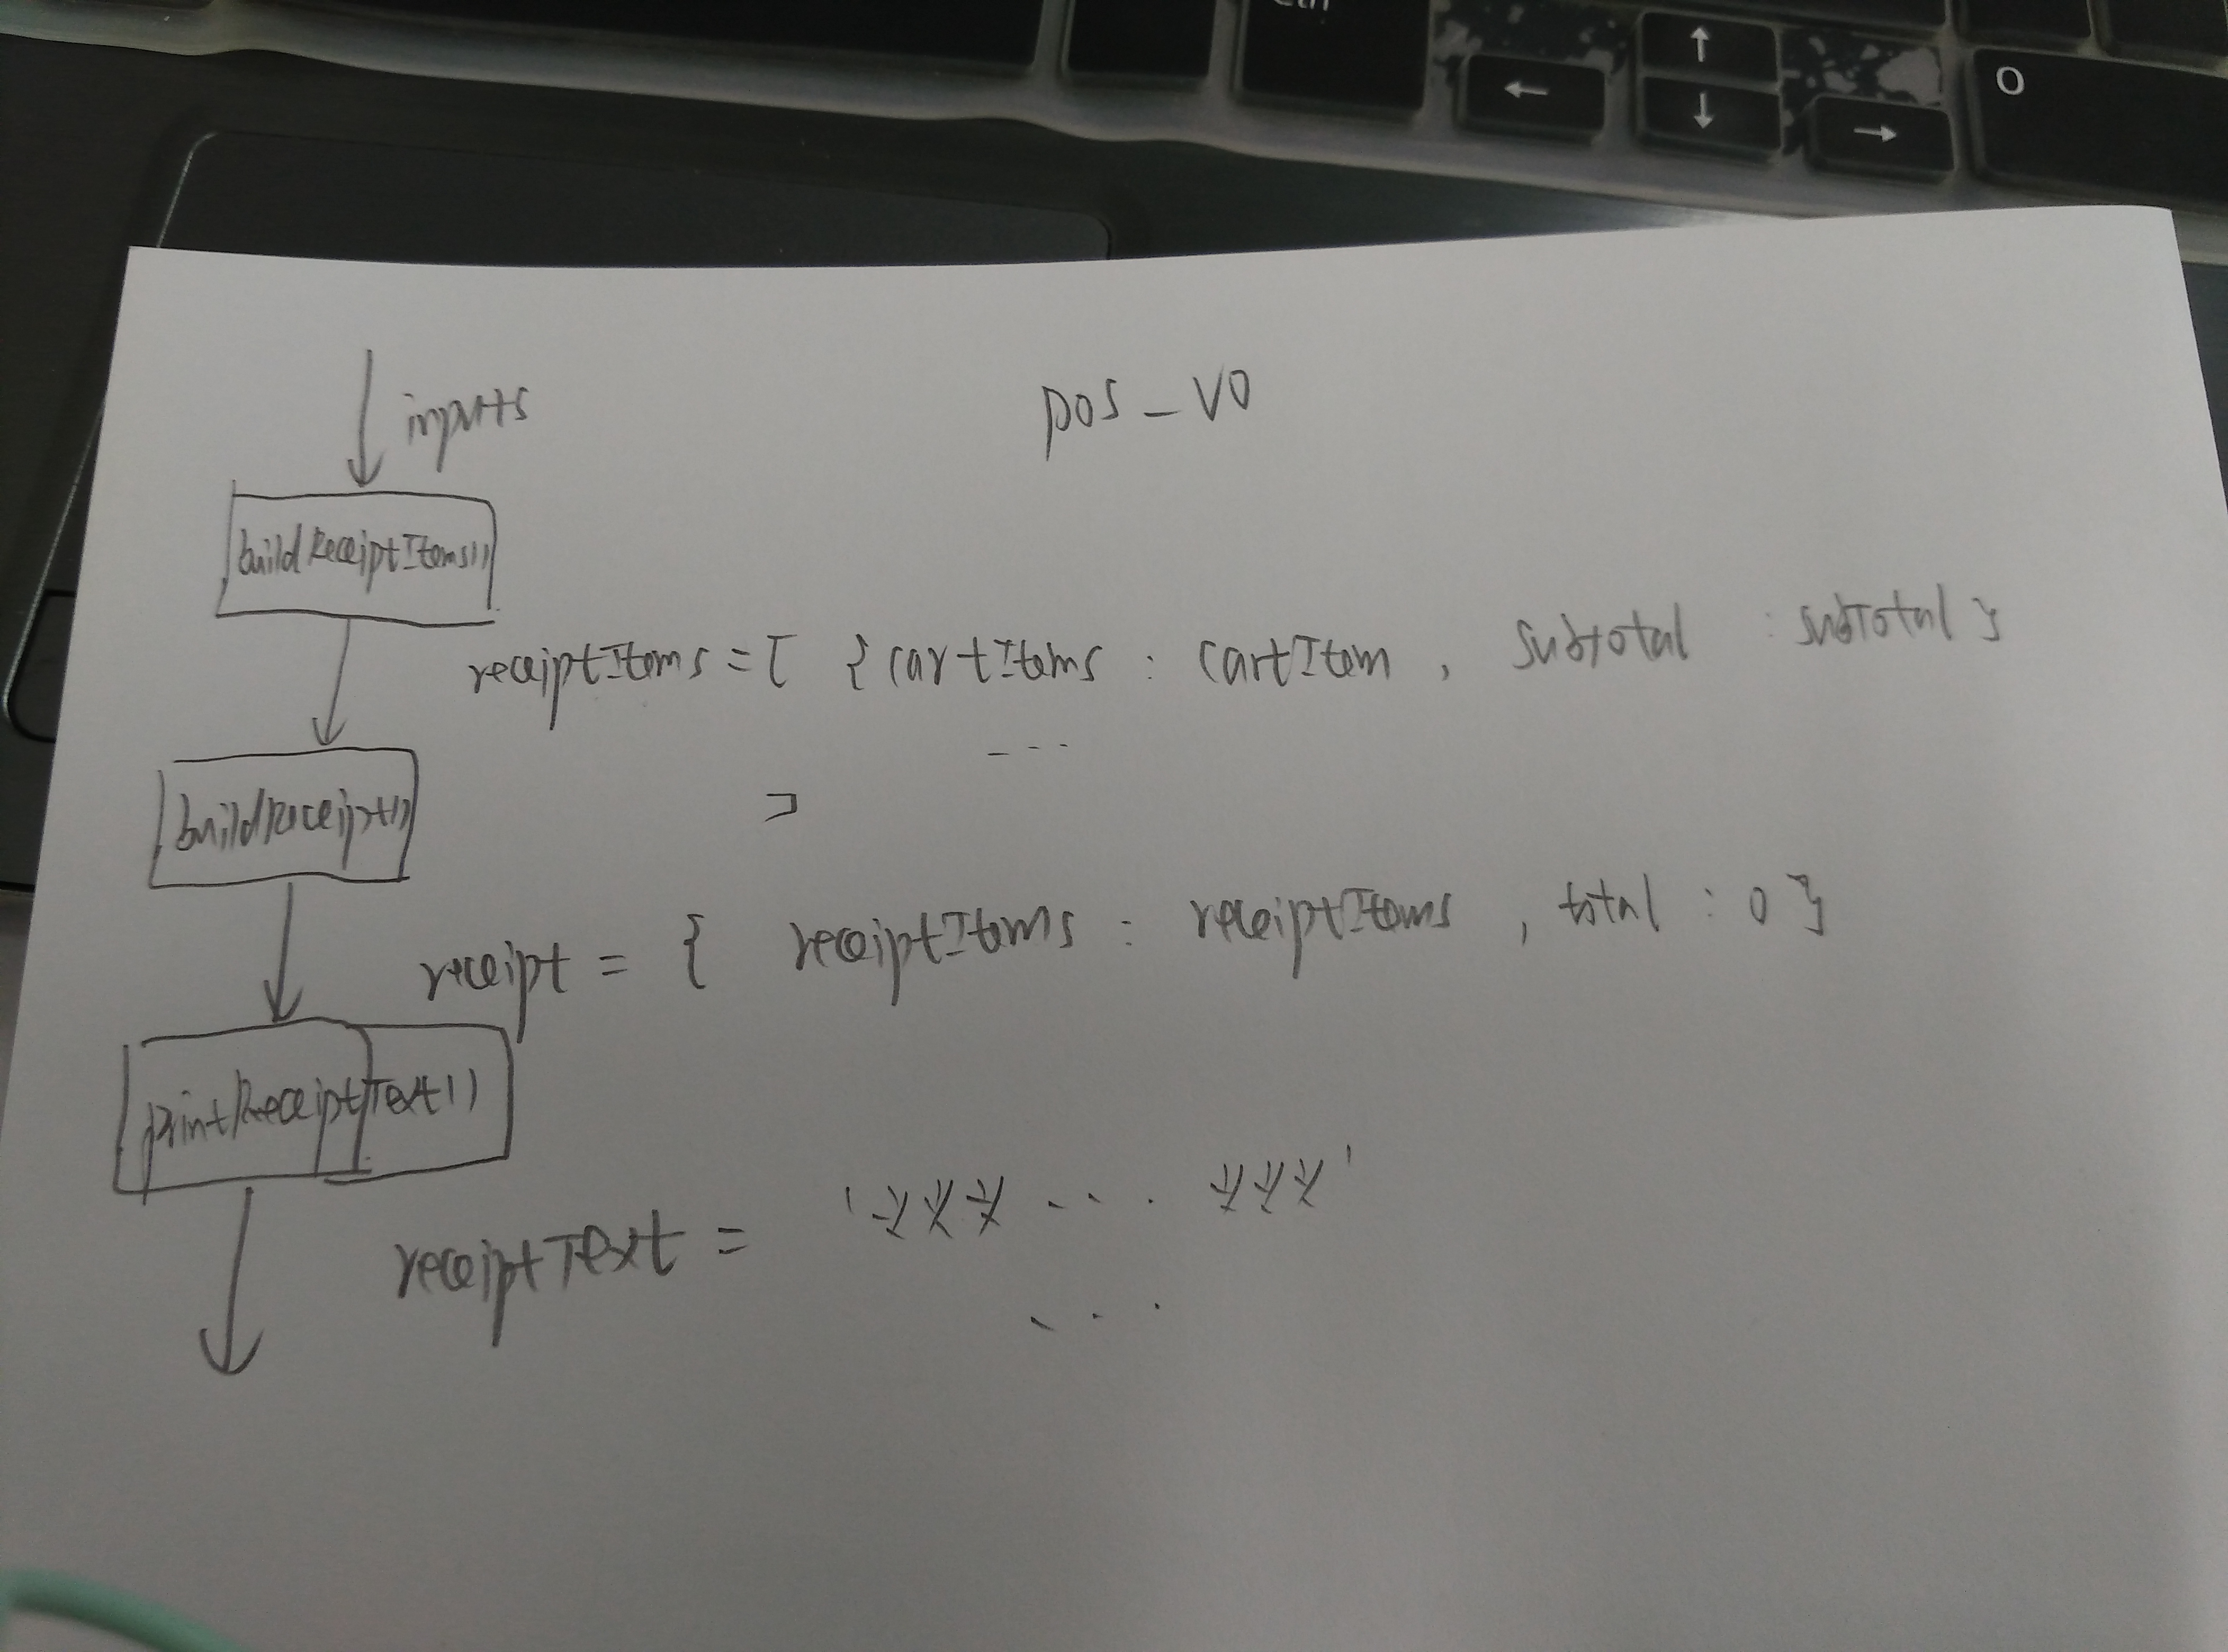 Ctrl
↑
← ↓ →
0
inputs
pos_v0
buildReceiptItems()
receiptItems = [ { cartItems : cartItem , subtotal : subTotal }
...
]
buildReceipt()
receipt = { receiptItems : receiptItems , total : 0 }
printReceiptText()
receiptText = '*** ... ***'
...